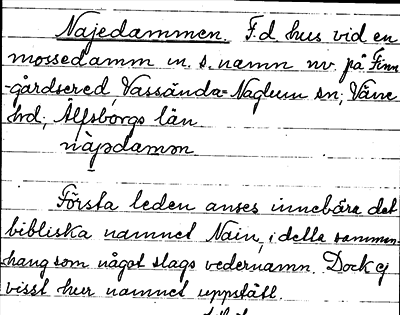 Najedammen. F.d. hus vid en
mossedamm m. s. namn nv. på Finn
-gårdsered, Vassända-Naglum sn, Väne
hd, Älfsborgs län
nàjədamən
Första leden anses innebära det
bibliska namnet Nain, i detta samman-
hang som något slags vedernamn. Dock ej
visst hur namnet uppstått.